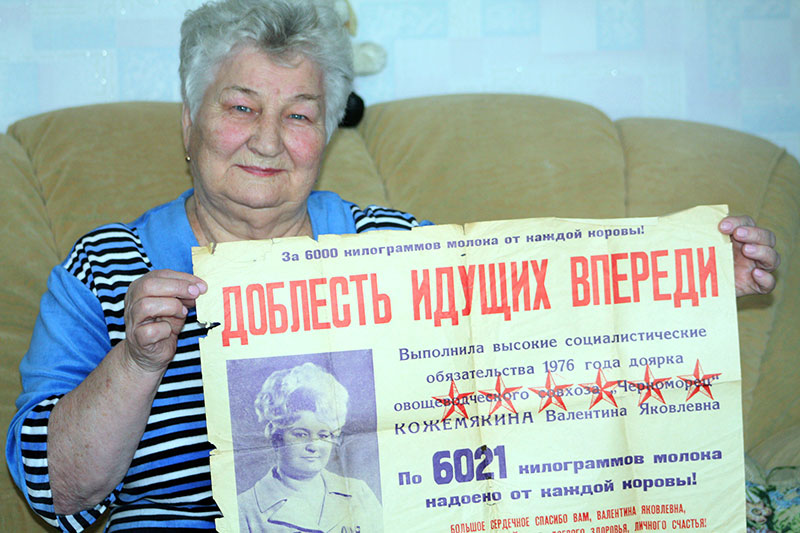 За 6000 килограммов молока от каждой коровы!
ДОБЛЕСТЬ ИДУЩИХ ВПЕРЕДИ
Выполнила высокие социалистические
обязательства 1976 года доярка
овощеводческого совхоза „Черноморец“
КОЖЕМЯКИНА Валентина Яковлевна
По 6021 килограммов молока
надоено от каждой коровы!
БОЛЬШОЕ СЕРДЕЧНОЕ СПАСИБО ВАМ, ВАЛЕНТИНА ЯКОВЛЕВНА,
ДОБРОГО ЗДОРОВЬЯ, ЛИЧНОГО СЧАСТЬЯ!